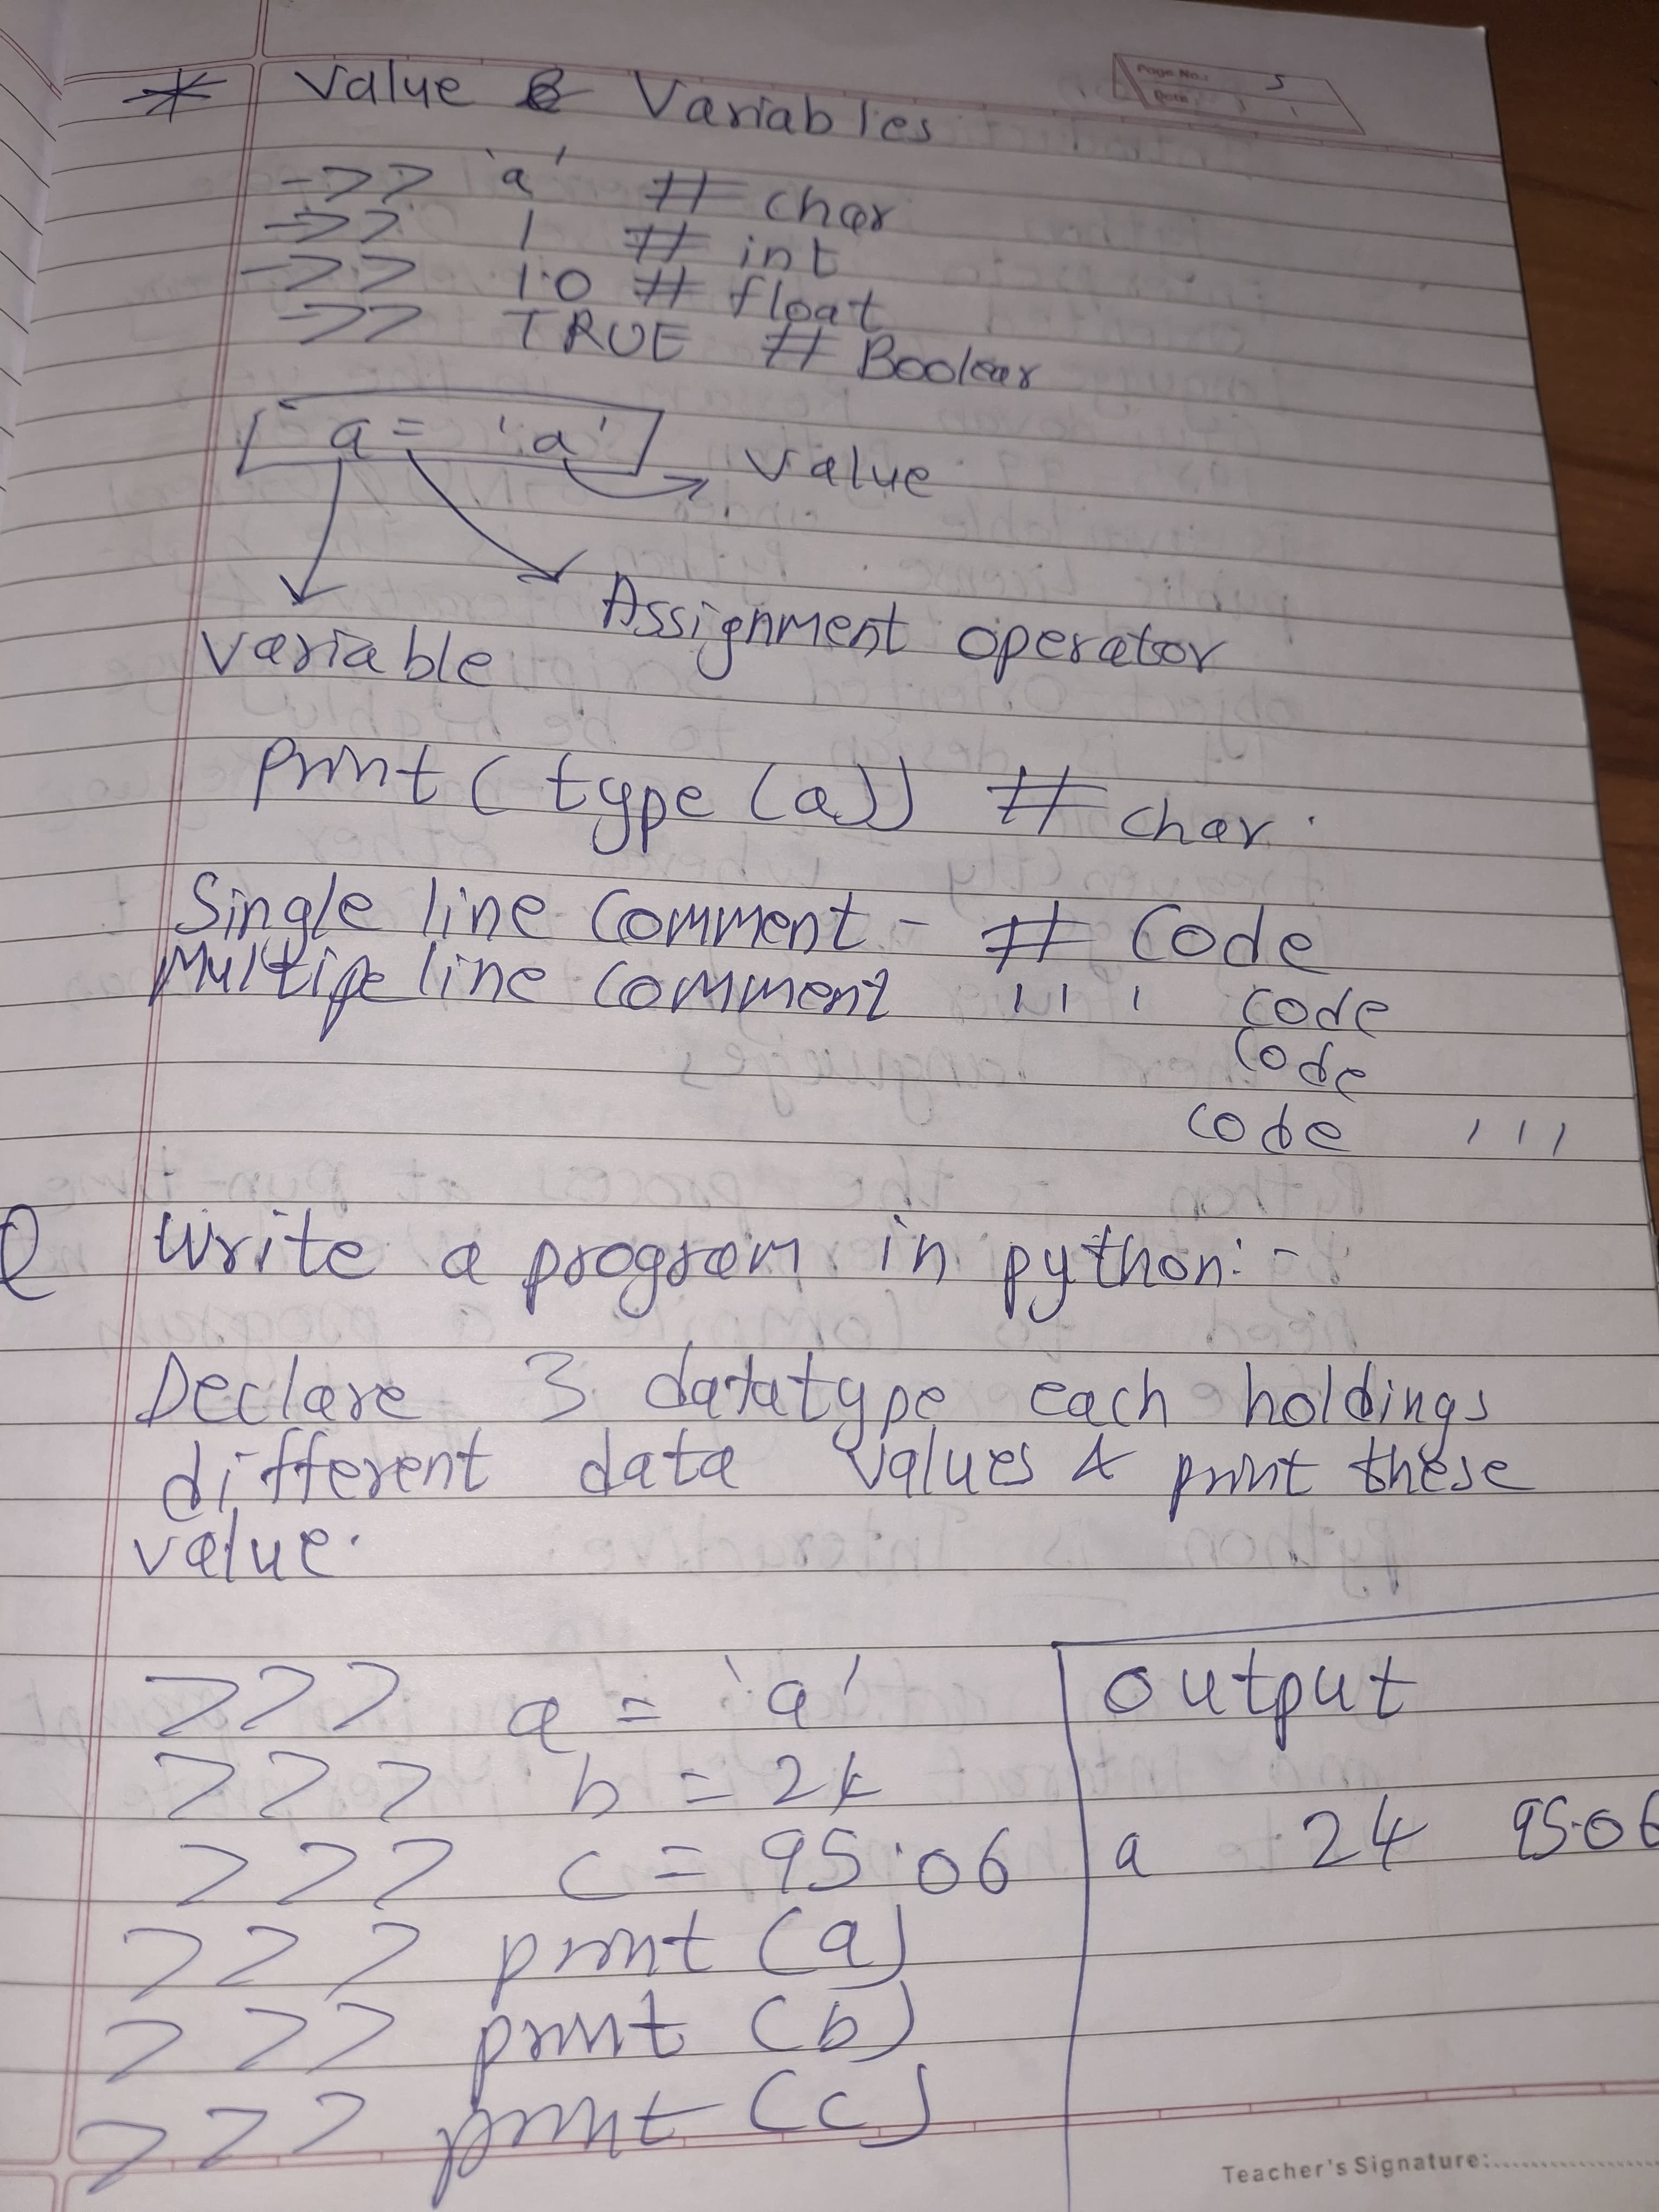 Page No.: 5
Date
* Value & Variables
->> 'a' # char
->> 1 # int
->> 1.0 # float
->> TRUE # Boolear
a = 'a'
value
Assignment operator
variable
Print (type (a)) # char.
Single line Comment - # Code
Multipe line Comment ''' code
Code
code '''
Q Write a program in python:-
Declare 3 datatype each holdings
different data values & print these
value.
>>> a = 'a'
>>> b = 24
>>> c = 95.06
>>> print (a)
>>> print (b)
>>> print (c)
output
a 24 95.06
Teacher's Signature: